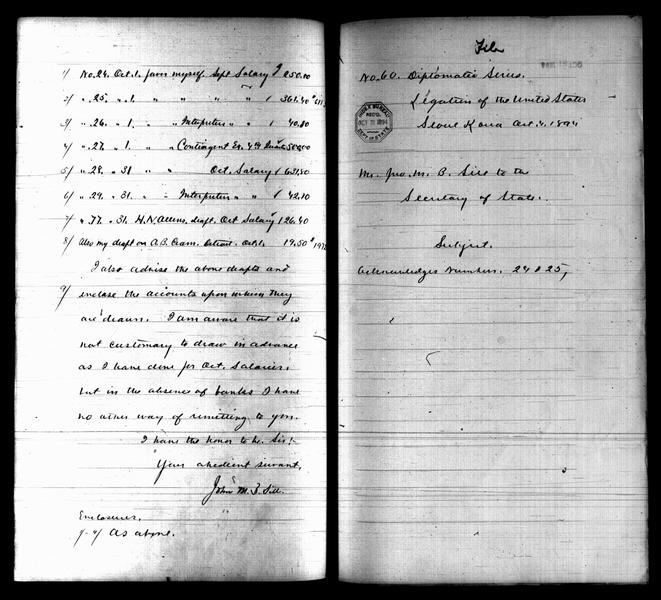 1/ No. 24. Oct. 1. favor myself. Sept Salary $ 250.00
2/ " .25. " .1. " " " " 361.40
3/ " .26. " 1. " " Interpreters " 40.80
4/ " .27. " 1. " " Contingent Ex. 4th Quarter 500.00
5/ " .28. " 31 " " Oct. Salary 631.40
6/ " .29. " 31. " " Interpreters " " 42.10
7/ " .77. " 31. H. N. Allens. draft. Oct Salary 126.40
8/ Also my draft on A. B. Detroit. Oct. 1. 19.50
I also advise the above drafts and
9/ enclose the accounts upon which they
are drawn. I am aware that it is
not customary to draw in advance
as I have done for Oct. Salaries,
but in the absence of banks I have
no other way of remitting to you.
I have the honor to be, Sir:
Your obedient servant,
John M. B. Sill.
Enclosures.
1/-9/ As above.
File
No. 60. Diplomatic Series.
Legation of the United States
Seoul Korea Oct. 4, 1894
INDEX BUREAU
REC'D
OCT 31 1894
DEPT. OF STATE
Mr. Jno. M. B. Sill to the
Secretary of State.
Subject.
Acknowledges Numbers. 24 & 25,